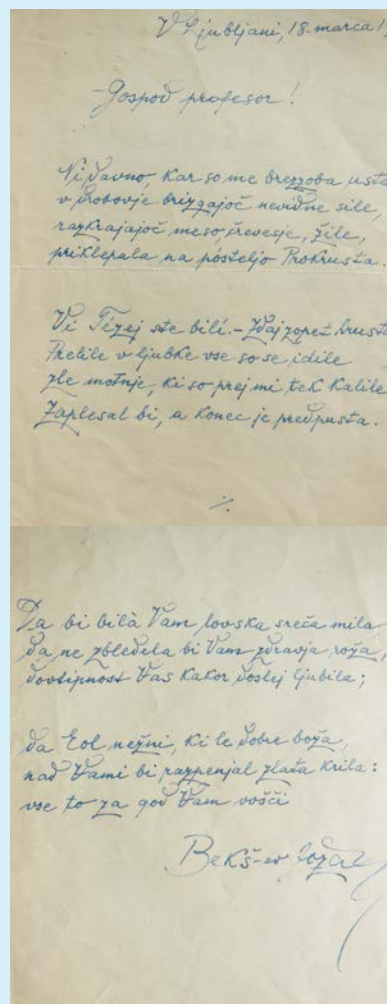 V Ljubljani, 18. marca 1
Gospod profesor!
Ni davno, kar so me brezzoba usta
v drobovje brizgajoč nevidne sile,
razkrajajoč meso, črevesje, žile,
priklepala na posteljo Prokrusta.
Vi Tezej ste bili. – Zdaj zopet hrusta
Prelile v ljubke vse so se idile
zle motnje, ki so prej mi tek kalile
Zaplesal bi, a konec je predpusta.
./.
Da bi bila Vam lovska sreča mila
da ne zbledela bi Vam zdravja roža,
dovtipnost Vas kakor doslej ljubila;
da Eol nežni, ki le dobre boža,
nad Vami bi razpenjal zlata krila:
vse to za god Vam vošči
Bekš-ev Joža